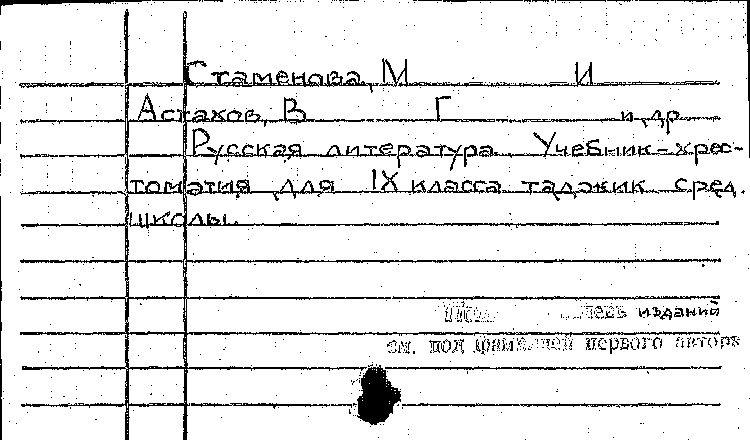 Стаменова, М И
Астахов, В Г и др
Русская литература. Учебник-хрес-
томатия для IX класса таджик. сред.
школы.
изданий
см. под фамилией первого автора